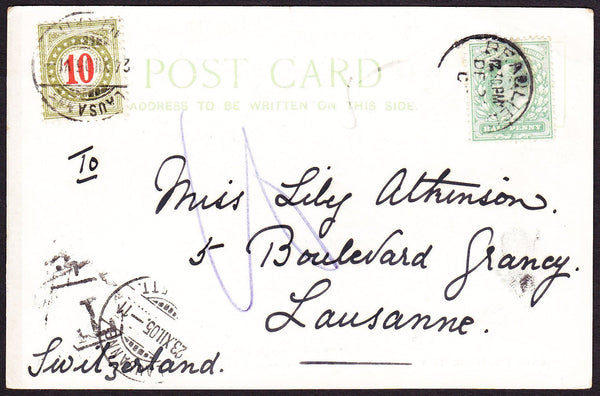 10
LAUSANNE
POST CARD
ADDRESS TO BE WRITTEN ON THIS SIDE.
HALFPENNY
To
Miss Lily Atkinson.
5 Boulevard Grancy.
Lausanne.
Switzerland.
T
23.XII.05.